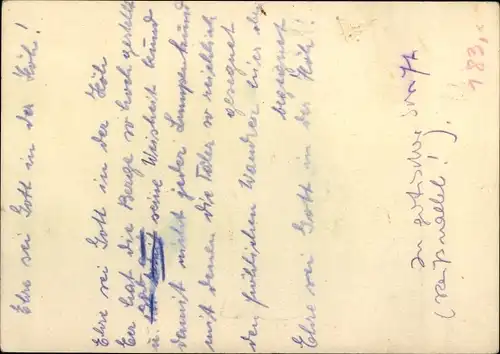 Ehre sei Gott in der Höhe!
Ehre sei Gott in der Höh
Er hat die Berge so hoch gestellt
u. tat damit seine Weisheit kund
damit nicht jeder Lumpenhund
mit denen die Täler so reichlich
gesegnet
den fröhlichen Wandrer hier oben
begegnet
Ehre sei Gott in der Höh!!
In gotischer Schrift
(Reißnadel!).
183,-